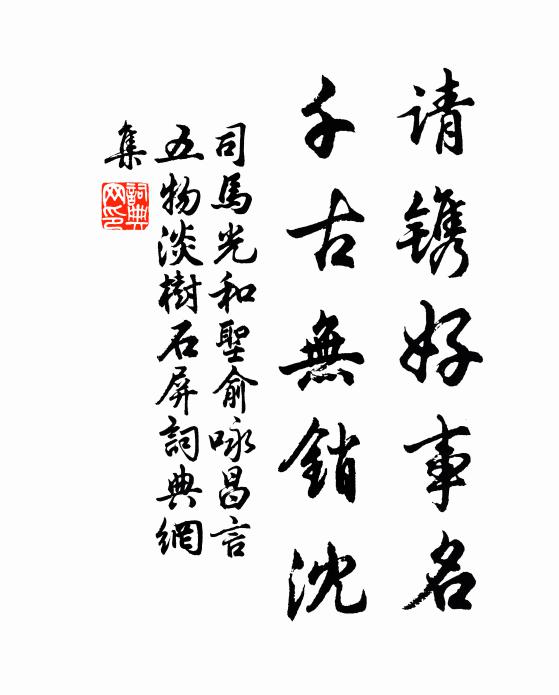 请镌好事名
千古無銷沈
司馬光和聖俞咏昌言
五物淡樹石屏詞典網
集
詞典
网印